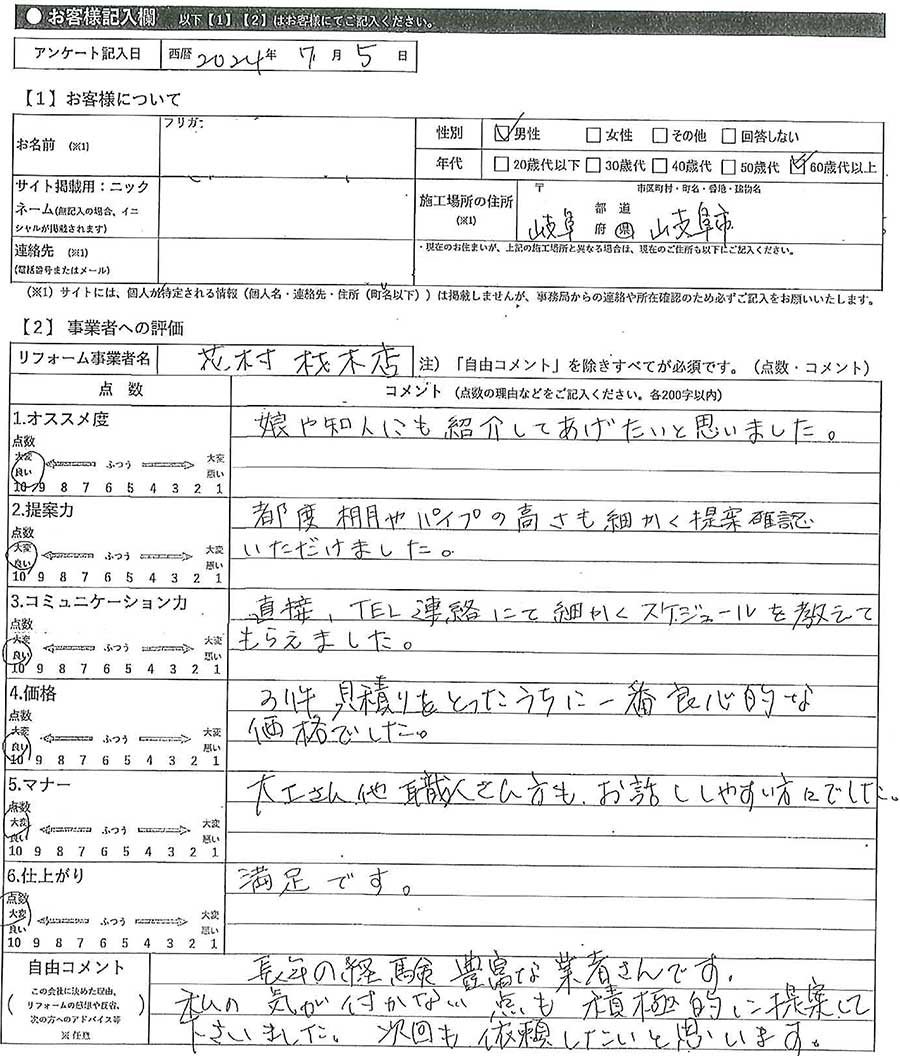 ● お客様記入欄 以下【1】【2】はお客様にてご記入ください。
アンケート記入日 西暦 2024年 7月 5日
【1】お客様について
お名前 (※1) フリガナ
性別 男性 女性 その他 回答しない
年代 20歳代以下 30歳代 40歳代 50歳代 60歳代以上
サイト掲載用：ニック
ネーム(無記入の場合、イニ
シャルが掲載されます)
施工場所の住所
(※1)
〒 市区町村・町名・番地・建物名
岐阜 都道府県 岐阜市
・現在のお住まいが、上記の施工場所と異なる場合は、現在のご住所も以下にご記入ください。
連絡先 (※1)
(電話番号またはメール)
(※1) サイトには、個人が特定される情報（個人名・連絡先・住所（町名以下））は掲載しませんが、事務局からの連絡や所在確認のため必ずご記入をお願いいたします。
【2】事業者への評価
リフォーム事業者名 花村材木店 注）「自由コメント」を除きすべてが必須です。（点数・コメント）
点数 コメント（点数の理由などをご記入ください。各200字以内）
1.オススメ度
点数
大変良い ふつう 大変悪い
10 9 8 7 6 5 4 3 2 1
娘や知人にも紹介してあげたいと思いました。
2.提案力
点数
大変良い ふつう 大変悪い
10 9 8 7 6 5 4 3 2 1
都度 棚やパイプの高さも細かく提案確認
いただけました。
3.コミュニケーション力
点数
大変良い ふつう 大変悪い
10 9 8 7 6 5 4 3 2 1
直接、TEL連絡にて細かくスケジュールを教えて
もらえました。
4.価格
点数
大変良い ふつう 大変悪い
10 9 8 7 6 5 4 3 2 1
3件 見積りをとったうちに一番良心的な
価格でした。
5.マナー
点数
大変良い ふつう 大変悪い
10 9 8 7 6 5 4 3 2 1
大工さん他 職人さん方も、お話ししやすい方にでした。
6.仕上がり
点数
大変良い ふつう 大変悪い
10 9 8 7 6 5 4 3 2 1
満足です。
自由コメント
この会社に決めた理由、
リフォームの感想や反省、
次の方へのアドバイス等
※任意
長年の経験豊富な業者さんです。
私の気が付かない点も積極的に提案して
下さいました。次回も依頼したいと思います。